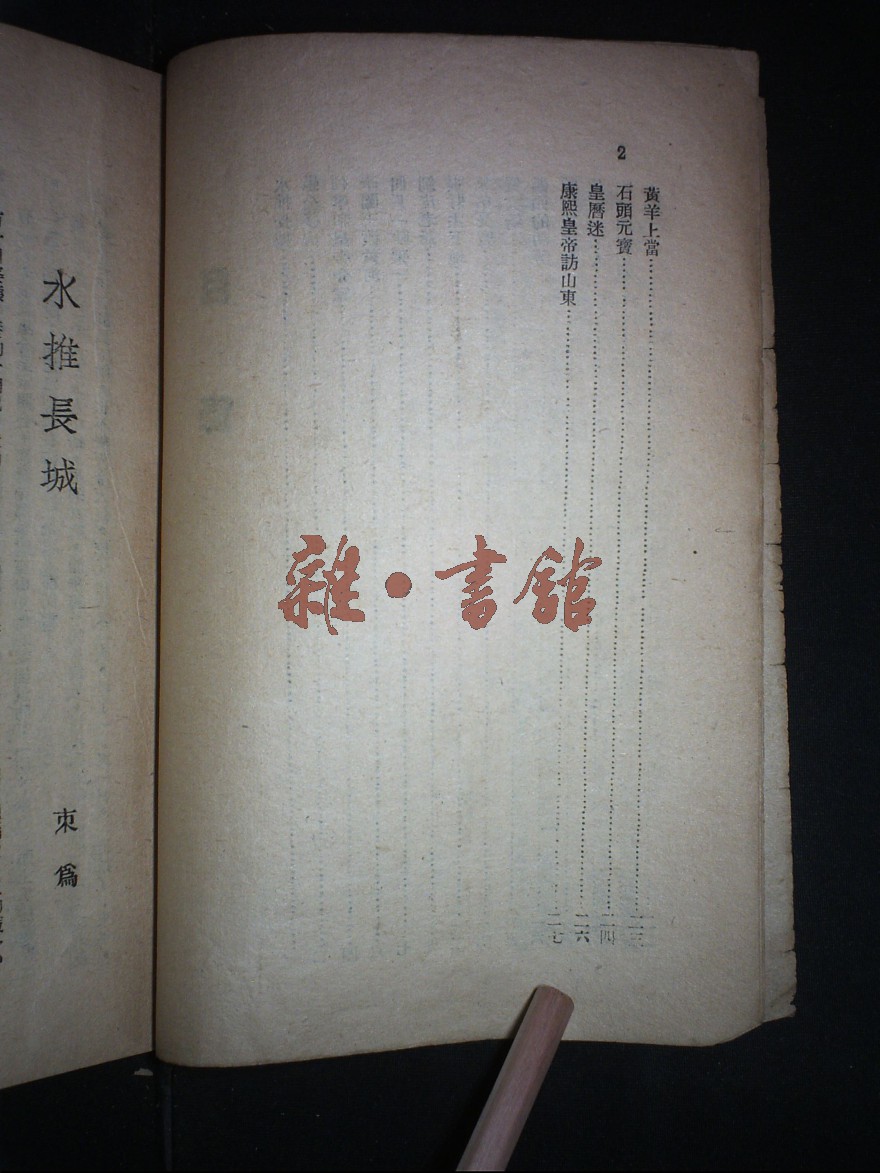 2
黃羊上當……二三
石頭元寶……二四
皇曆迷……二六
康熙皇帝訪山東……二七
雜·書館
水推長城
束爲